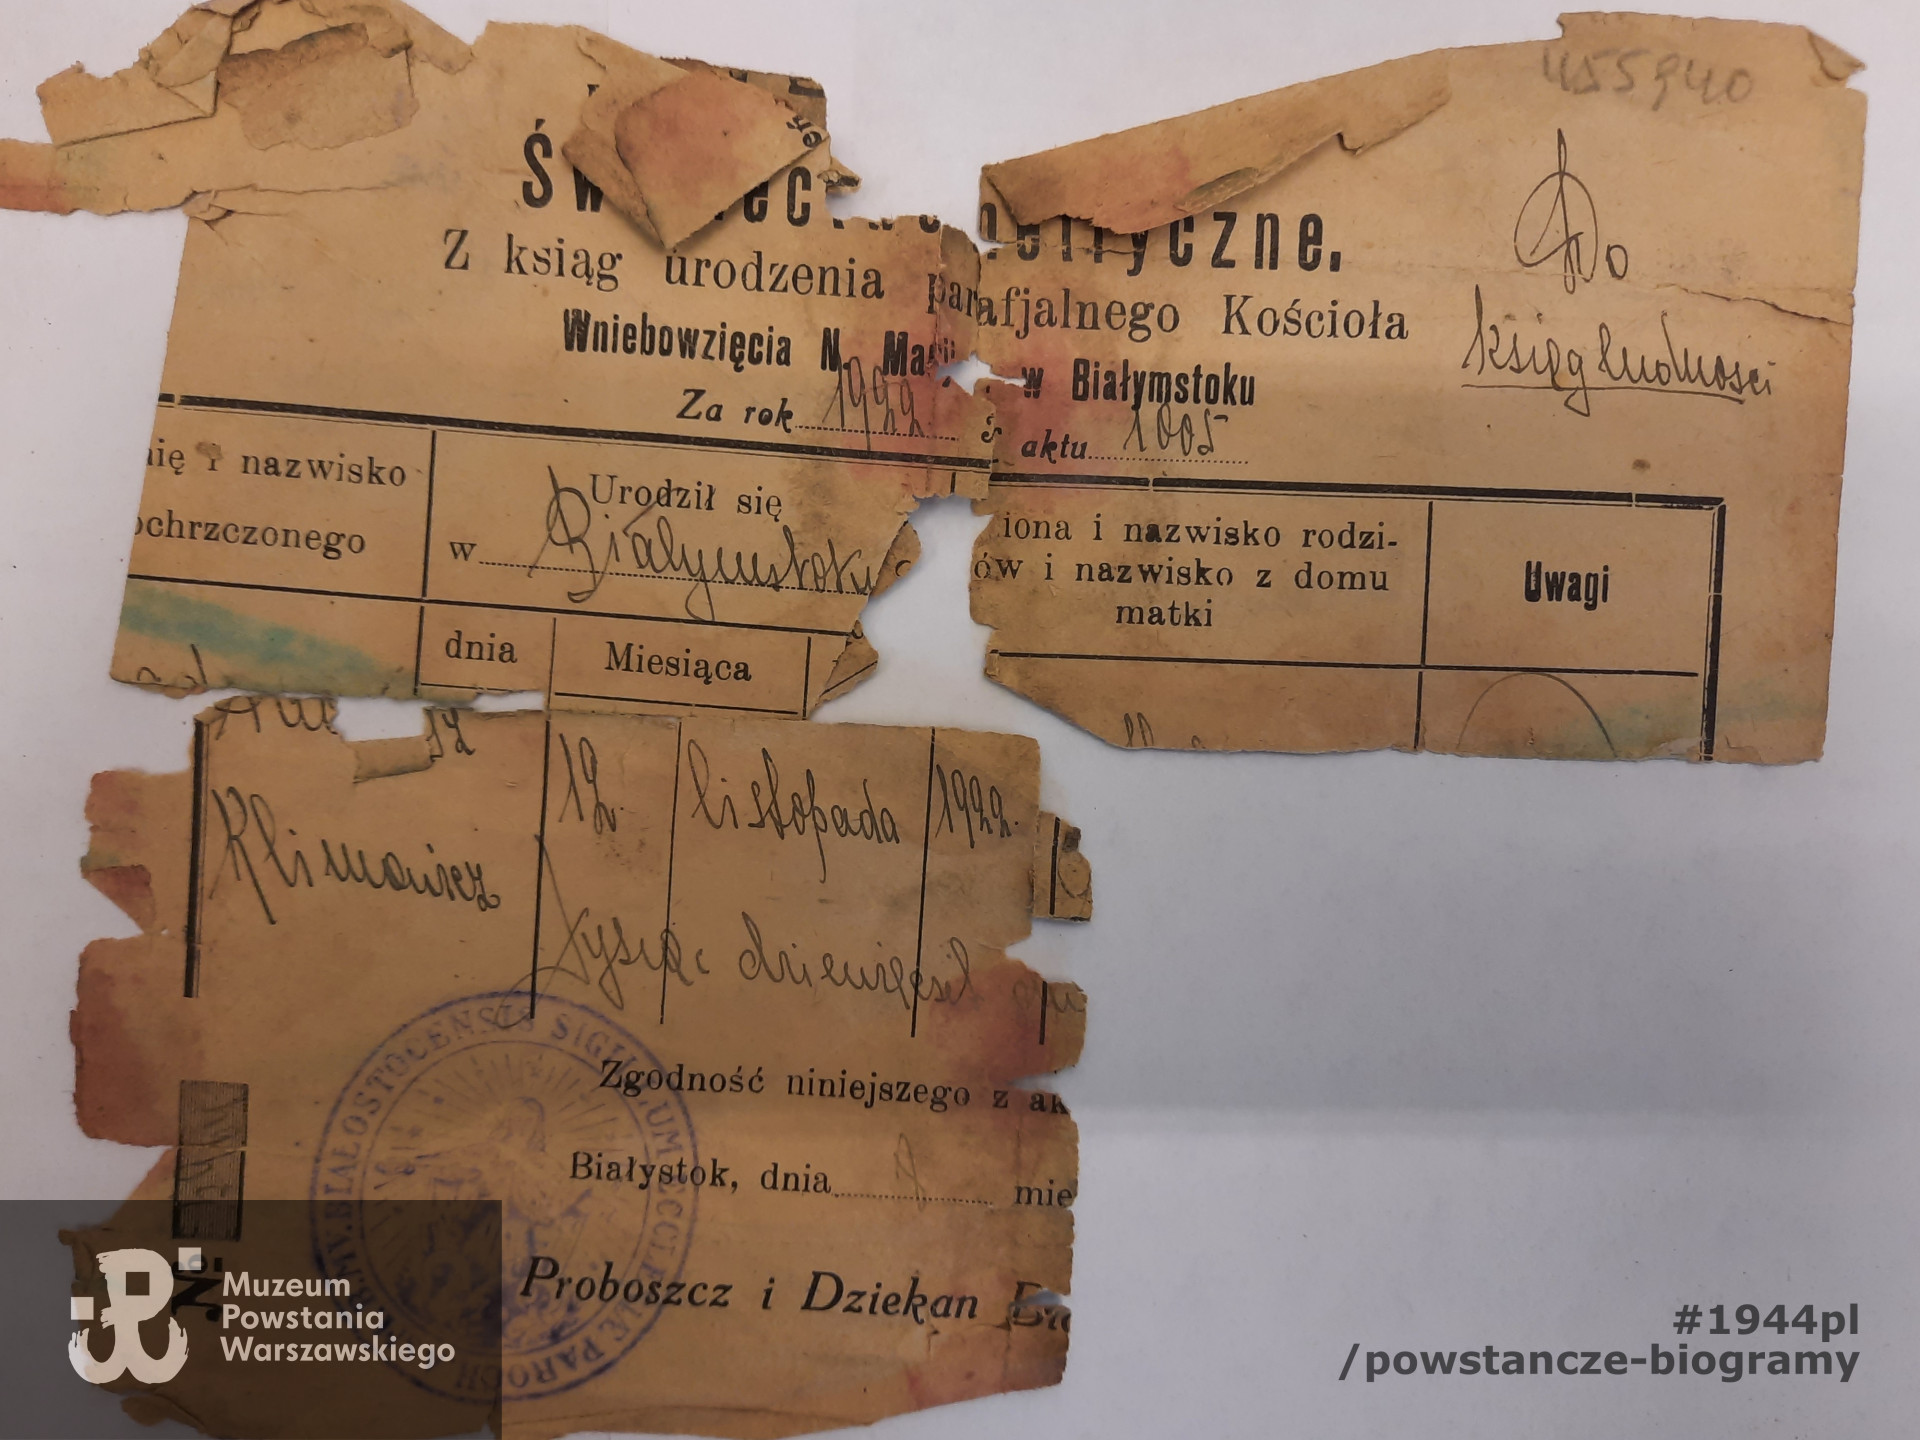 455940
Do
księg ludności
Z ksiąg urodzenia parafjalnego Kościoła
Wniebowzięcia N. w Białymstoku
Za rok 1922 aktu 1005
nię i nazwisko
ochrzczonego
Urodził się
w Białymstoku
dnia Miesiąca
iona i nazwisko rodzi-
ów i nazwisko z domu
matki
Uwagi
Klimowicz 12 listopada 1922.
tysiąc dziewięćset
Zgodność niniejszego z ak
Białystok, dnia mie
Proboszcz i Dziekan
BMV. BIAŁOSTOCENSIS SIGILLUM ECCLESIAE PAROCH
Muzeum
Powstania
Warszawskiego
#1944pl
/powstancze-biogramy